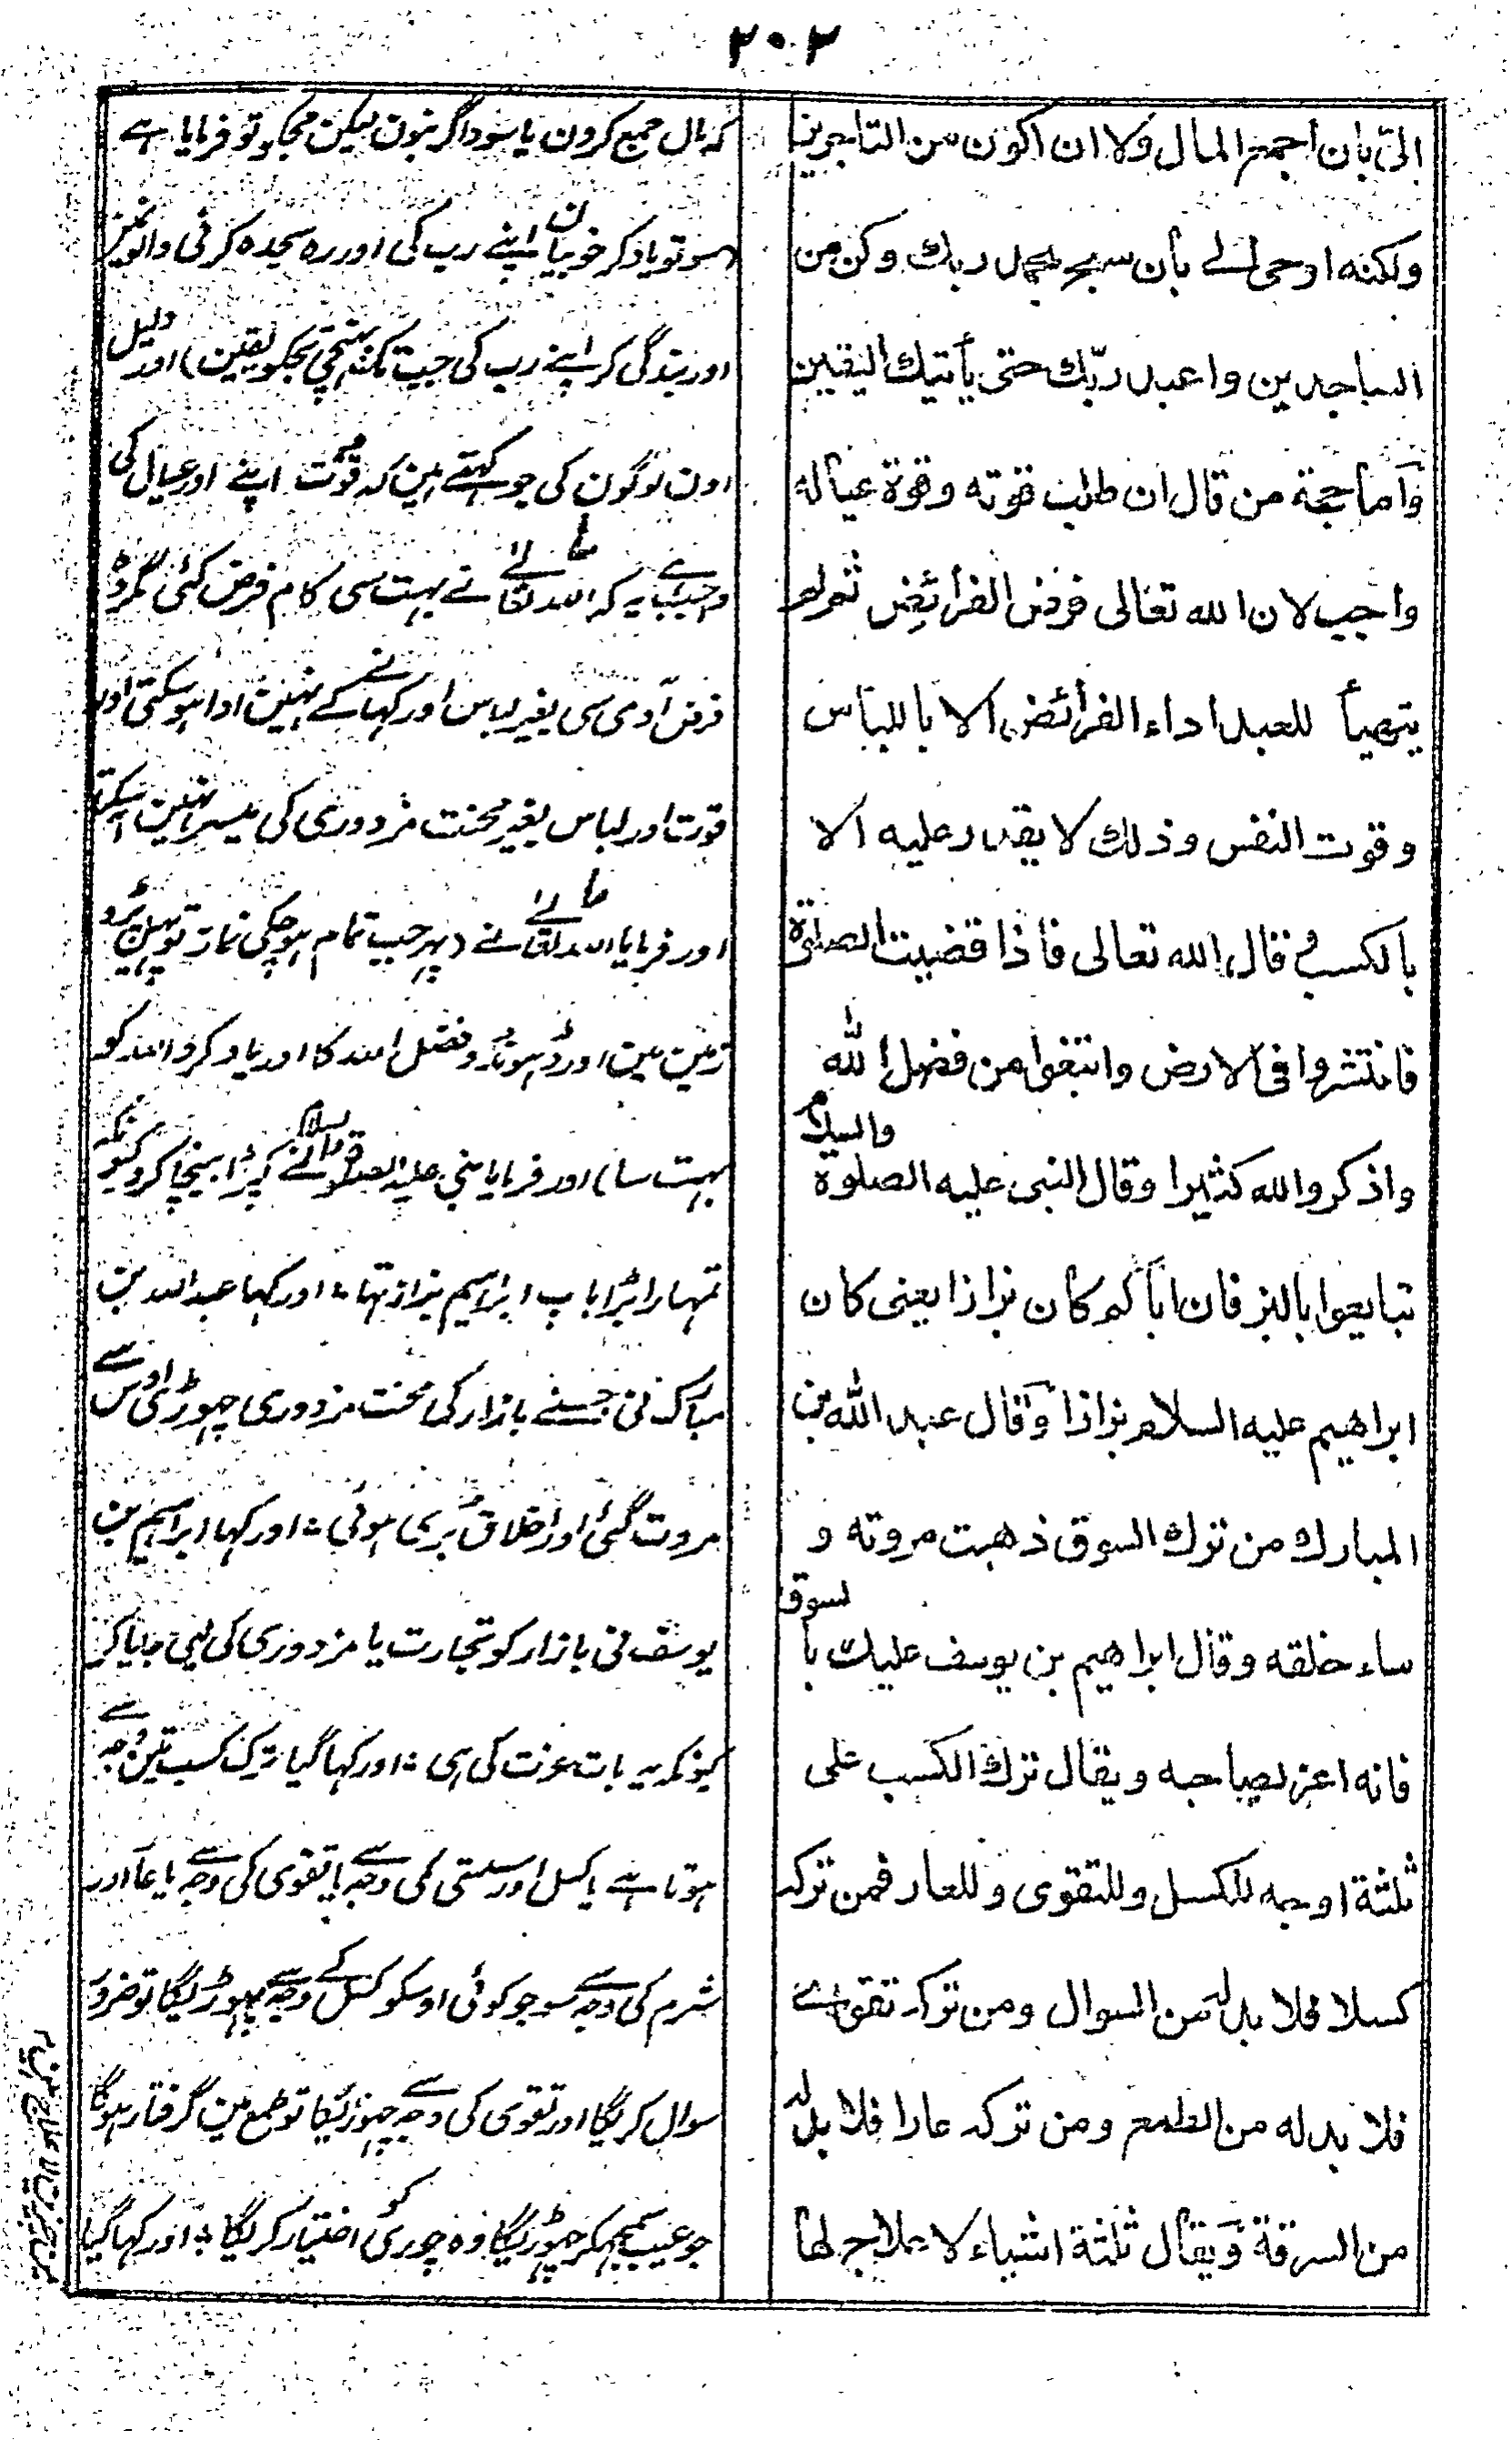 ٣٠٣
الیّ بان اجمع المال ولا ان اکون من التاجرین
ولکنه اوحی الے بأن سبح بحمد ربك وکن من
الساجدین واعبد ربّك حتی یأتیك الیقین
وأما حجة من قال ان طلب قوته وقوة عیاله
واجب لان الله تعالی فرض الفرائض ثم لم
یتهیأ للعبد اداء الفرائض الا باللباس
وقوت النفس وذلك لا یقدر علیه الا
بالکسب قال الله تعالی فاذا قضیت الصلوٰة
فانتشروا فی الارض وابتغوا من فضل الله
واذکروا الله کثیرا وقال النبی علیه الصلوة والسلام
تبایعوا بالبز فان اباکم کان بزازا یعنی کان
ابراهیم علیه السلام بزازا وقال عبد الله بن
المبارك من ترك السوق ذهبت مروته و
ساء خلقه وقال ابراهیم بن یوسف علیك بالسوق
فانه اعز لصاحبه ویقال ترك الکسب علی
ثلثة اوجه للکسل وللتقوی وللعار فمن ترکه
کسلا فلا بد له من السوال ومن ترکه تقوے
فلا بد له من الطمع ومن ترکه عارا فلا بد له
من السرقة ویقال ثلثة اشیاء لا علاج لها
که مال جمع کرون یا سوداگر بنون لیکن مجکو تو فرمایا ہے
(سو تو یاد کر خوبیان اپنے رب کی اور رہ سجدہ کرنی والونمین
اور بندگی کر اپنے رب کی جب تک پہنچی تجکو یقین) اور دلیل
اون لوگون کی جو کہتے ہین کہ قوت اپنے اور عیال کی
واجب ہے یہ کہ اللہ تعالے نے بہت سی کام فرض کئی مگر وہ
فرض آدمی سی بغیر لباس اور کہانے کے نہین ادا ہو سکتی اور
قوت اور لباس بغیر محنت مزدوری کی میسر نہین آسکتے
اور فرمایا اللہ تعالے نے (پہر جب تمام ہو چکی نماز تو پہیل پڑو
زمین مین اور ڈہونڈو فضل اللہ کا اور یاد کرو اللہ کو
بہت سا) اور فرمایا نبی علیہ الصلوٰۃ والسلام نے کپڑا بیچا کرو کیونکہ
تمہارا بڑا باپ ابراہیم بزاز تہا ؞ اور کہا عبد اللہ بن
مبارک نی جسنے بازار کی محنت مزدوری چہوڑ دی اوس سے
مروت گئی اور اخلاق بری ہوئی ؞ اور کہا ابراہیم بن
یوسف نی بازار کو تجارت یا مزدوری کی لیی جایا کر
کیونکہ یہ بات عزت کی ہی ؞ اور کہا گیا ترک کسب تین وجہ سے
ہوتا ہے یا کسل اور سستی کی وجہ سے یا تقوی کی وجہ سے یا عار اور
شرم کی وجہ سے سو جو کوئی اوسکو کسل کے وجہ سے چہوڑیگا تو ضرور
سوال کریگا اور تقوی کی وجہ سے چہوڑیگا تو طمع مین گرفتار ہوگا
جو عیب سمجہکر چہوڑیگا وہ چوری کو اختیار کریگا ؞ اور کہا گیا